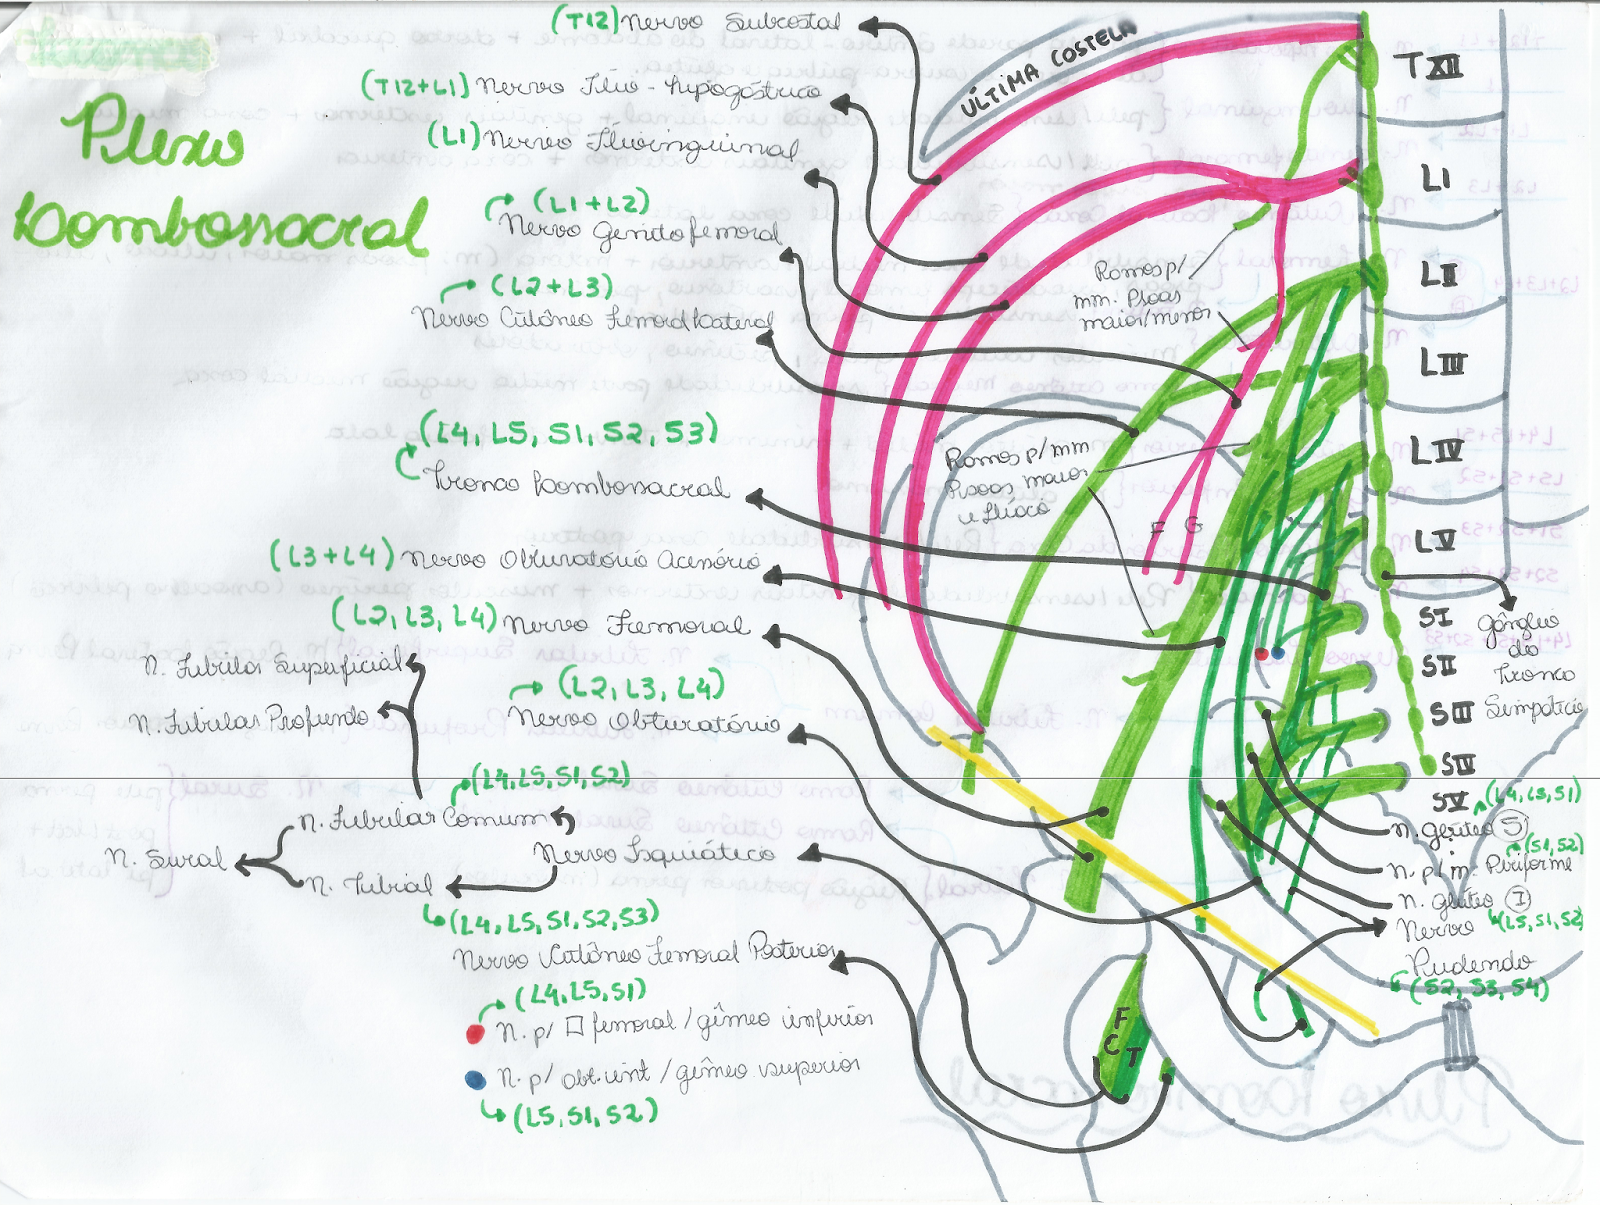 Plexo
Lombossacral
(T12) Nervo Subcostal
(T12+L1) Nervo Ílio-hipogástrico
(L1) Nervo Ilioinguinal
(L1+L2)
Nervo Genitofemoral
(L2+L3)
Nervo Cutâneo Femoral Lateral
(L4, L5, S1, S2, S3)
Tronco Lombossacral
(L3+L4) Nervo Obturatório Acessório
(L2, L3, L4) Nervo Femoral
N. Fibular Superficial
(L2, L3, L4)
N. Fibular Profundo
Nervo Obturatório
(L4, L5, S1, S2)
N. Fibular Comum
N. Sural
Nervo Isquiático
N. Tibial
(L4, L5, S1, S2, S3)
Nervo Cutâneo Femoral Posterior
(L4, L5, S1)
N. p/ □ femoral / gêmeo inferior
N. p/ obt. int / gêmeo superior
(L5, S1, S2)
ÚLTIMA COSTELA
Ramos p/
mm. Psoas
maior/menor
Ramos p/ mm
Psoas maior
e Ilíaco
F G
T XII
L I
L II
L III
L IV
L V
S I
S II
S III
S IV
S V
Gânglio
do
Tronco
Simpático
(L4, L5, S1)
N. glúteo S
(S1, S2)
N. p/ m. Piriforme
N. glúteo I
(L5, S1, S2)
Nervo
Pudendo
(S2, S3, S4)
F
C T